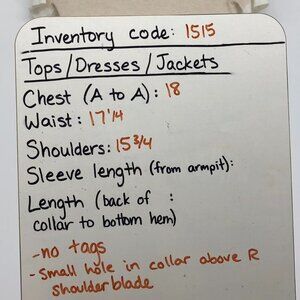 Inventory code: 1515
Tops/Dresses/Jackets
Chest (A to A): 18
Waist: 17 1/4
Shoulders: 15 3/4
Sleeve length (from armpit):
Length (back of :
collar to bottom hem)
-no tags
-small hole in collar above R
shoulderblade